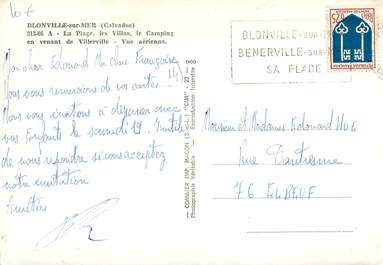 BLONVILLE-sur-MER (Calvados)
313-06 A - La Plage, les Villas, le Camping
en venant de Villerville - Vue aérienne.
Mon cher Edouard Ma chère Françoise
Nous vous remercions de vos cartes
Nous vous invitons à déjeuner avec
vos Enfants le samedi 19. Inutile
de nous répondre si vous acceptez
notre invitation
Amitiés
COMBIER IMP. MACON (S.-&-L.) "CIM"
Photographie Véritable - Reproduction Interdite
BLONVILLE-sur-
BENERVILLE-sur-
SA PLAGE
0,25
Monsieur et Madame Edouard
Rue
76 ELBEUF